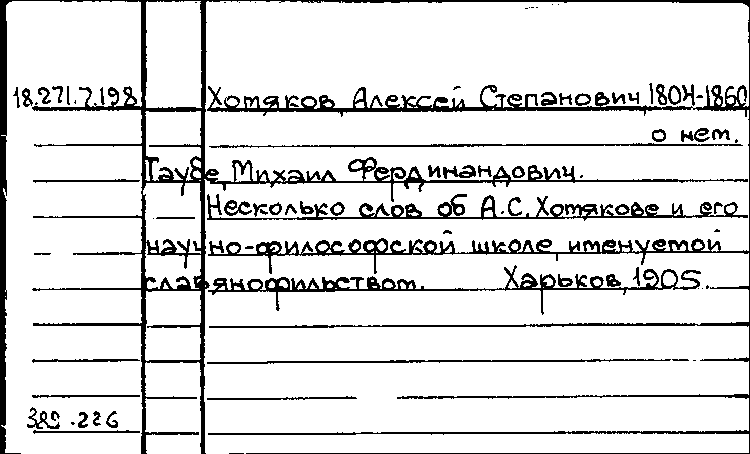 18.271.7.198 Хомяков, Алексей Степанович, 1804-1860,
о нем.
Таубе, Михаил Фердинандович.
Несколько слов об А.С. Хомякове и его
научно-философской школе, именуемой
славянофильством. Харьков, 1905.
389.226